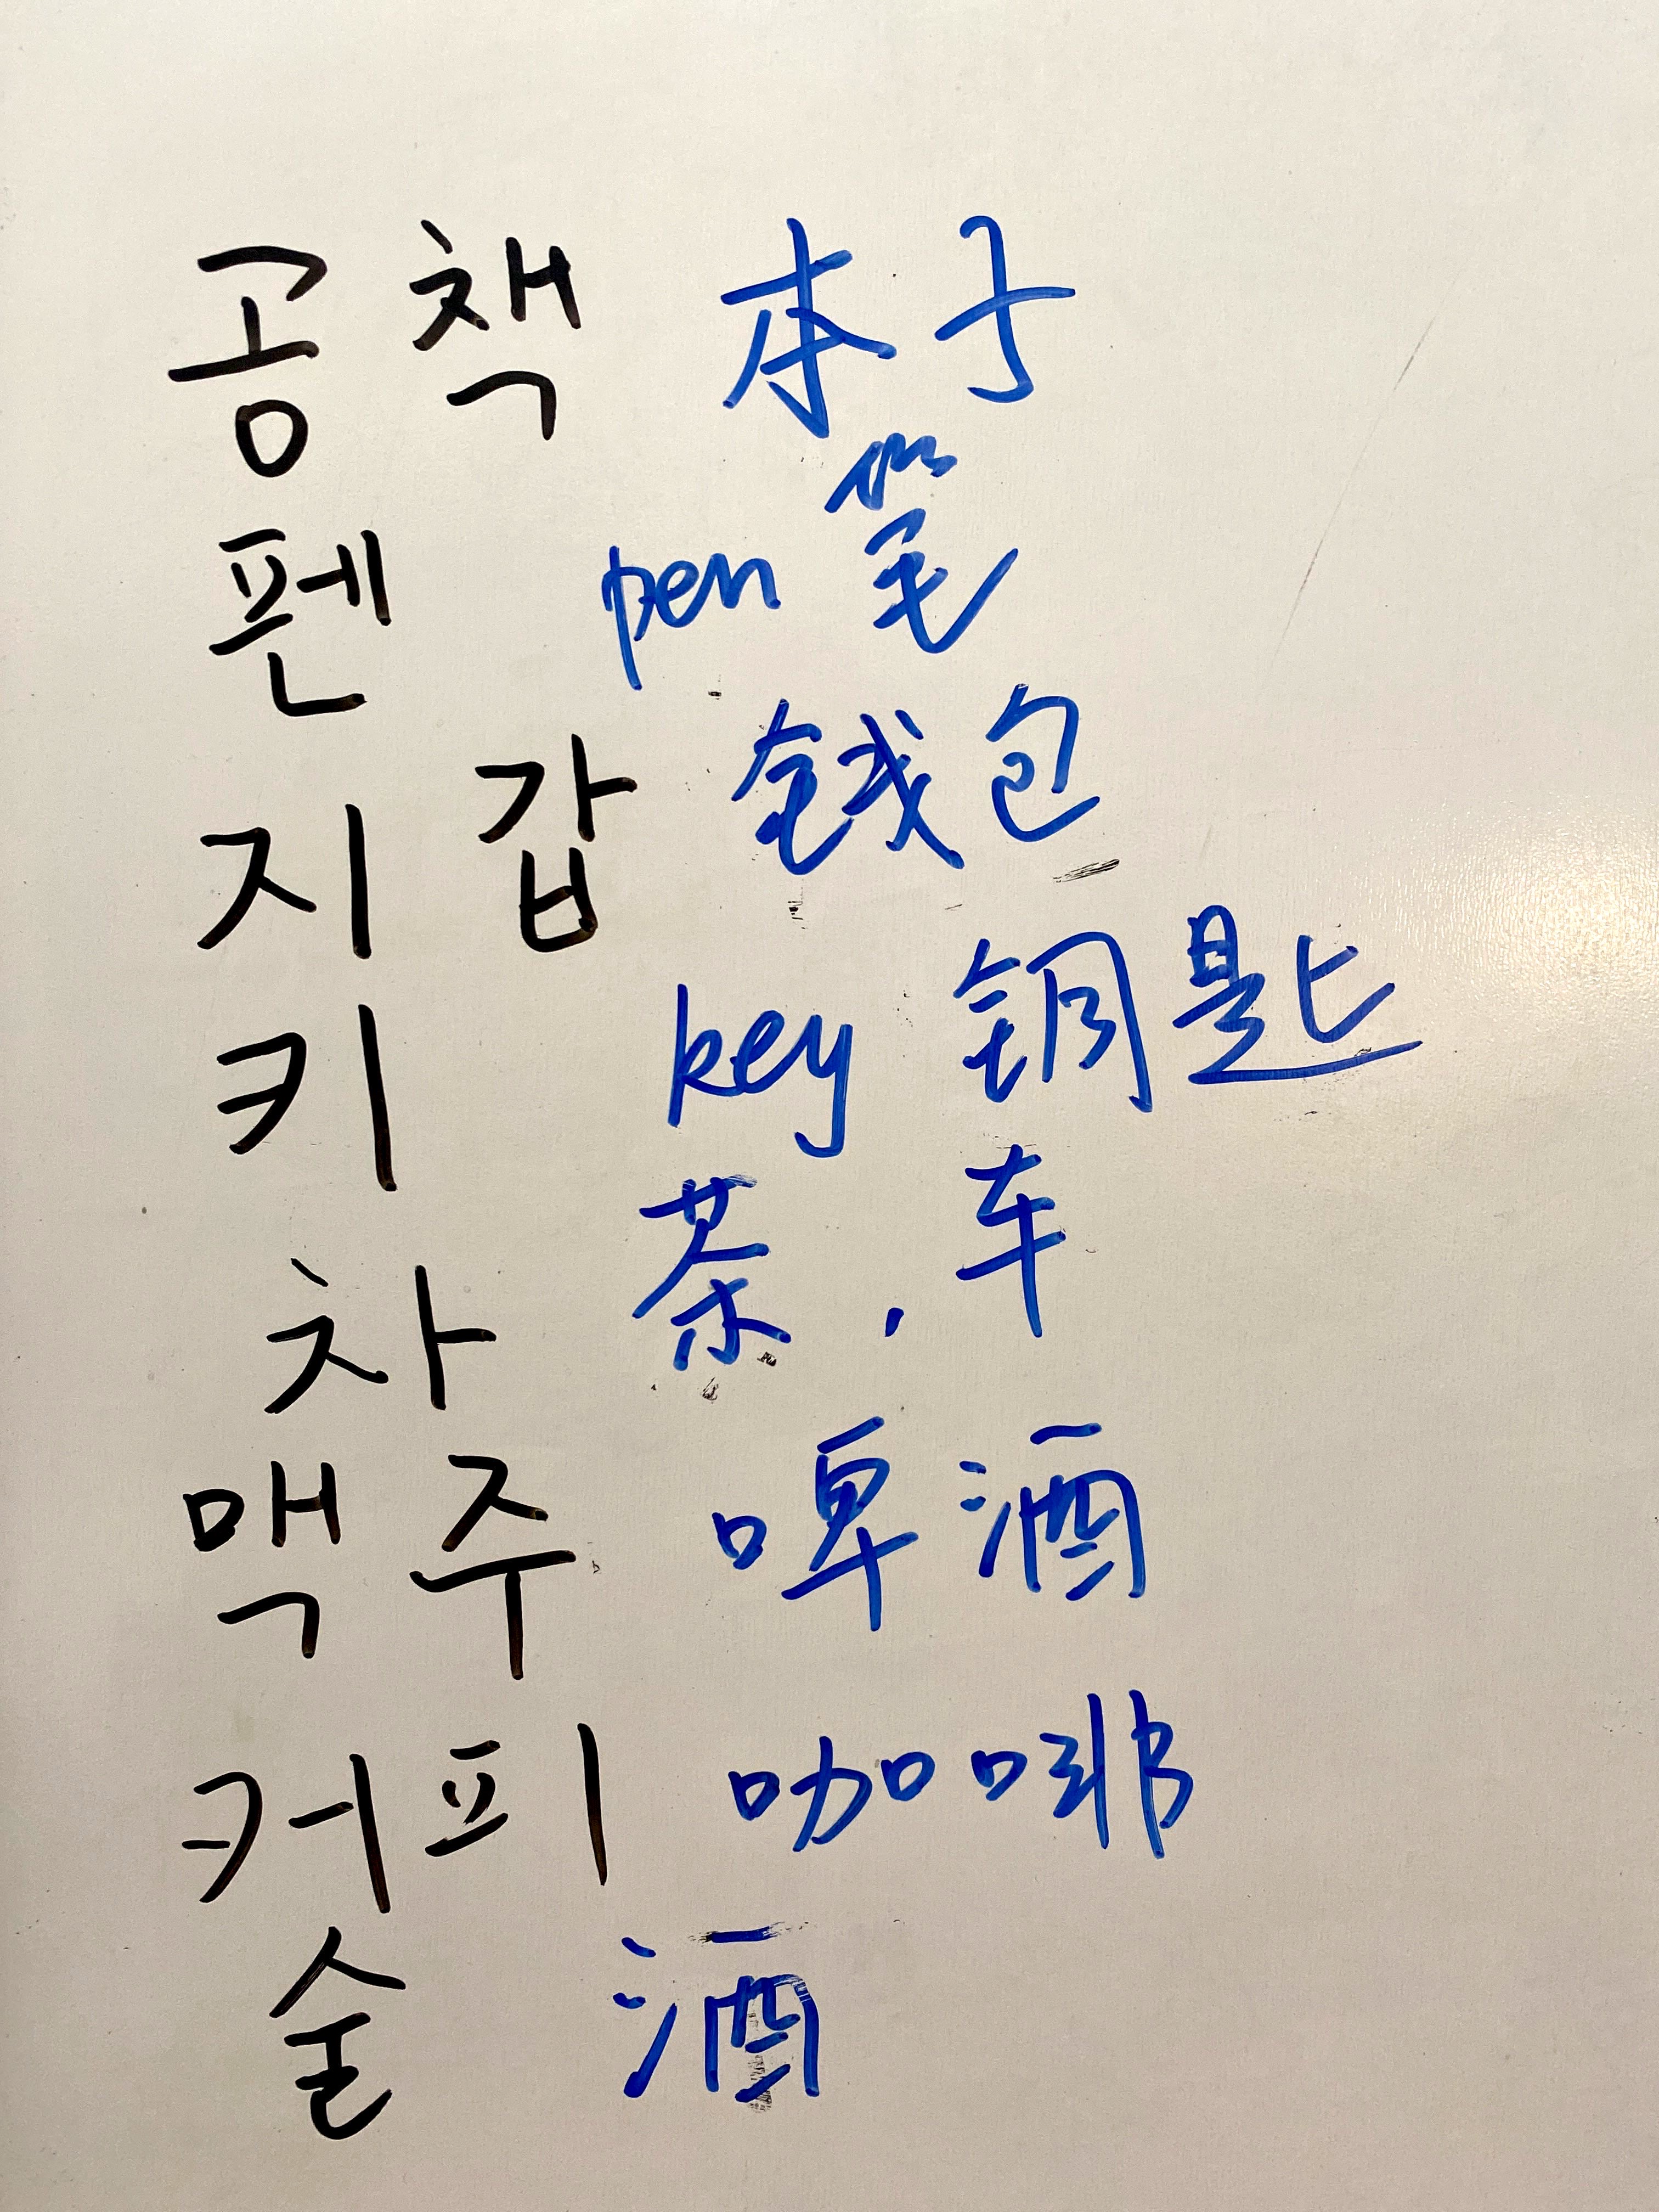 공책 本子
펜 pen 笔
지갑 钱包
키 key 钥匙
차 茶, 车
맥주 啤酒
커피 咖啡
술 酒